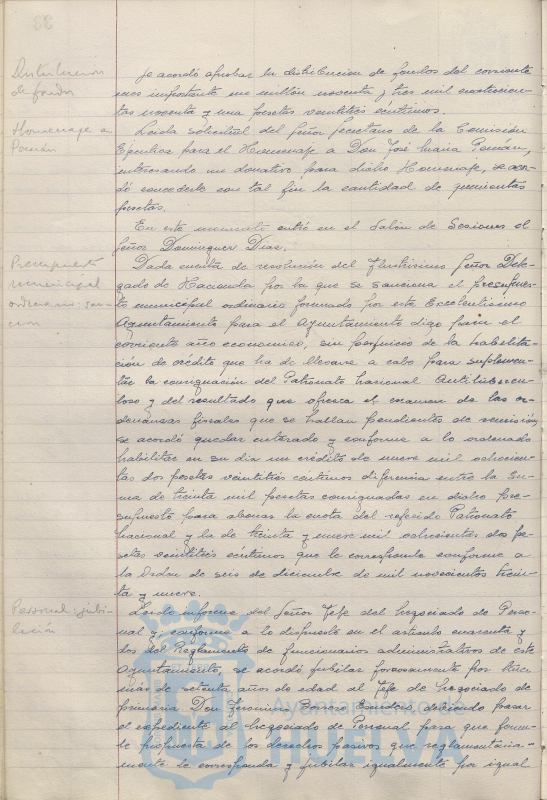 33
Distribucion
de fondos
Se acordó aprobar la distribucion de fondos del corriente
mes importante un millón noventa y tres mil cuatrocien-
tas noventa y una pesetas veintitres céntimos.
Homenaje a
Pemán
Leida solicitud del Señor Secretario de la Comisión
Ejecutiva para el Homenaje a Don José Maria Pemán,
interesando un donativo para dicho Homenaje, se acor-
dó concederle con tal fin la cantidad de quinientas
pesetas.
En este momento entró en el Salón de Sesiones el
Señor Dominguez Dias.
Presupuesto
municipal
ordinario: san-
cion
Dada cuenta de resolución del Ilustrisimo Señor Dele-
gado de Hacienda por la que se sanciona el presupues-
to municipal ordinario formado por este Excelentísimo
Ayuntamiento para el Ayuntamiento digo para el
corriente año economico, sin perjuicio de la habilita-
ción de crédito que ha de llevarse a cabo para suplemen-
tar la consignación del Patronato Nacional Antitubercu-
loso y del resultado que ofrezca el examen de las or-
denanzas fiscales que se hallan pendientes de remisión,
se acordó quedar enterado y conforme a lo ordenado
habilitar en su dia un crédito de nueve mil ochocien-
tas dos pesetas veintitres céntimos diferencia entre la su-
ma de treinta mil pesetas consignadas en dicho Pre-
supuesto para abonar la cuota del referido Patronato
Nacional y la de treinta y nueve mil ochocientas dos pe-
setas veintitres céntimos que le corresponde conforme a
la Orden de seis de diciembre de mil novecientos trein-
ta y nueve.
Personal: jubi-
lación
Leido informe del Señor Jefe del Negociado de Perso-
nal y, conforme a lo dispuesto en el articulo cuarenta y
dos del Reglamento de funcionarios administrativos de este
Ayuntamiento, se acordó jubilar forzosamente por tener
más de setenta años de edad al Jefe de Negociado de
primera Don Jeronimo Borrero debiendo pasar
el expediente al Negociado de Personal para que formu-
le propuesta de los derechos pasivos que reglamentaria-
mente le corresponda y jubilar igualmente por igual
Ayuntamiento de
HUELVA